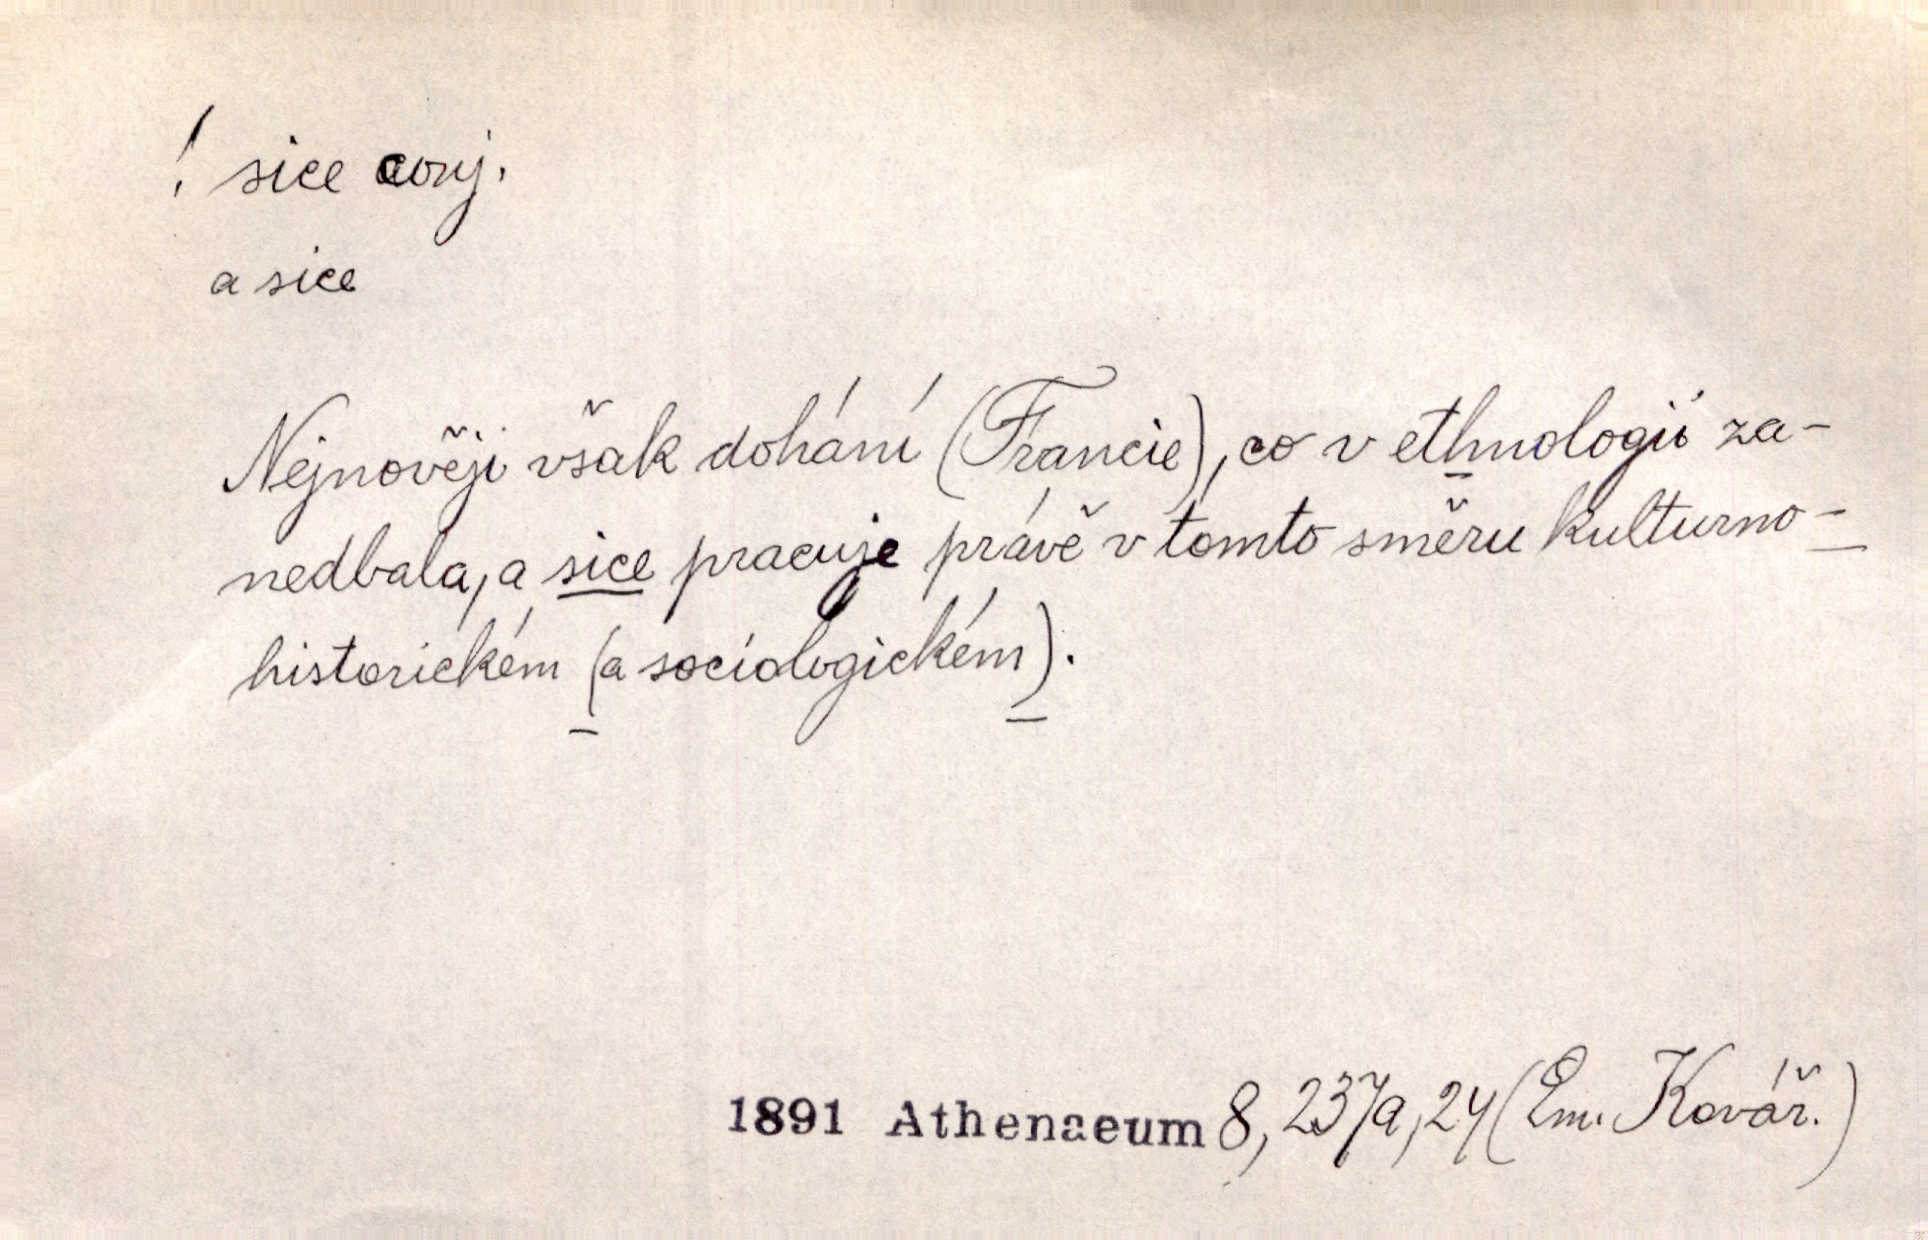 ! sice conj.
a sice
Nejnověji však dohání (Francie), co v ethnologii za-
nedbala, a sice pracuje právě v tomto směru kulturno-
historickém (a sociologickém).
1891 Athenaeum 8, 237a, 24 (Em. Kovář.)